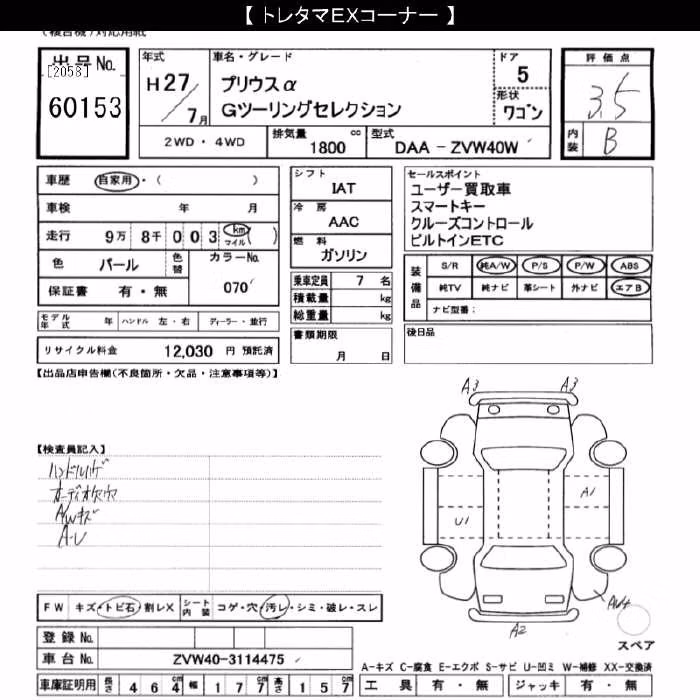 【 トレタマEXコーナー 】
(複合機)対応用紙
出品No.
[2058]
60153
年式
H27/7月
車名・グレード
プリウスα
Gツーリングセレクション
ドア
5
形状
ワゴン
評価点
3.5
内装
B
2WD・4WD
排気量
1800 cc
型式
DAA-ZVW40W
車歴 自家用・( )
車検 年 月
走行 9万 8千 0 0 3 km マイル ( )
色 パール 色替 カラーNo. 070
保証書 有・無
モデル年式 年 ハンドル 左・右 ディーラー・並行
リサイクル料金 12,030 円 預託済
シフト
IAT
冷房
AAC
燃料
ガソリン
乗車定員 7 名
積載量 kg
総重量 kg
書類期限
月 日
セールスポイント
ユーザー買取車
スマートキー
クルーズコントロール
ビルトインETC
装備品
S/R 純A/W P/S P/W ABS
純TV 純ナビ 革シート 外ナビ エアB
ナビ型番:
後日品
【出品店申告欄(不良箇所・欠品・注意事項等)】
【検査員記入】
ハンドルハゲ
オーディオ欠穴
A/Wキズ
A-U
A3 A3
A1
U1
AW4
A2
スペア
FW キズ・トビ石・割レX シート内装 コゲ・穴・汚レ・シミ・破レ・スレ
登録No.
車台No. ZVW40-3114475
車庫証明用 長さ 4 6 4 cm 幅 1 7 7 cm 高さ 1 5 7 cm
A-キズ C-腐食 E-エクボ S-サビ U-凹ミ W-補修 XX-交換済
工具 有・無 ジャッキ 有・無